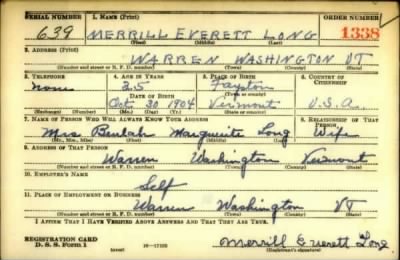 SERIAL NUMBER 1. NAME (Print) ORDER NUMBER
639 MERRILL EVERETT LONG 1338
(First) (Middle) (Last)
2. ADDRESS (Print)
WARREN WASHINGTON VT
(Number and street or R. F. D. number) (Town) (County) (State)
3. TELEPHONE 4. AGE IN YEARS 5. PLACE OF BIRTH 6. COUNTRY OF CITIZENSHIP
none 35 Fayston
DATE OF BIRTH (Town or county)
Oct. 30 1904 Vermont U.S.A.
(Exchange) (Number) (Mo.) (Day) (Yr.) (State or country)
7. NAME OF PERSON WHO WILL ALWAYS KNOW YOUR ADDRESS 8. RELATIONSHIP OF THAT PERSON
Mrs Beulah Marguerite Long Wife
(Mr., Mrs., Miss) (First) (Middle) (Last)
9. ADDRESS OF THAT PERSON
Warren Washington Vermont
(Number and street or R. F. D. number) (Town) (County) (State)
10. EMPLOYER'S NAME
Self
11. PLACE OF EMPLOYMENT OR BUSINESS
Warren Washington VT
(Number and street or R. F. D. number) (Town) (County) (State)
I AFFIRM THAT I HAVE VERIFIED ABOVE ANSWERS AND THAT THEY ARE TRUE.
REGISTRATION CARD
D. S. S. Form 1 (over) 16—17105 Merrill Everett Long
(Registrant's signature)